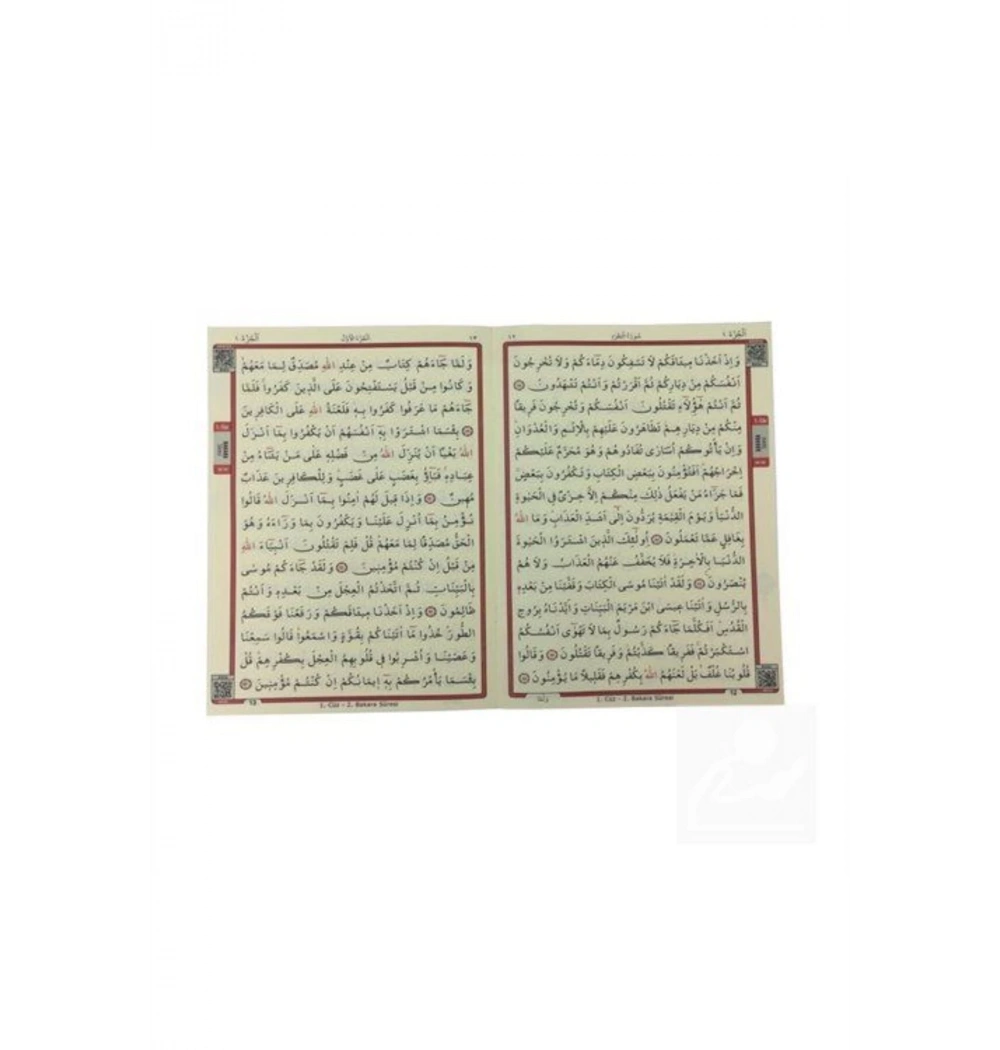 اَلْجُزْءُ ١
سُورَةُ الْبَقَرَةِ
١٢
وَاِذْ اَخَذْنَا مِيثَاقَكُمْ لَا تَسْفِكُونَ دِمَٓاءَكُمْ وَلَا تُخْرِجُونَ
اَنْفُسَكُمْ مِنْ دِيَارِكُمْ ثُمَّ اَقْرَرْتُمْ وَاَنْتُمْ تَشْهَدُونَ
ثُمَّ اَنْتُمْ هٰٓؤُ۬لَٓاءِ تَقْتُلُونَ اَنْفُسَكُمْ وَتُخْرِجُونَ فَرِيقًا
مِنْكُمْ مِنْ دِيَارِهِمْ تَظَاهَرُونَ عَلَيْهِمْ بِالْاِثْمِ وَالْعُدْوَانِ
وَاِنْ يَأْتُوكُمْ اُسَارٰى تُفَادُوهُمْ وَهُوَ مُحَرَّمٌ عَلَيْكُمْ
اِخْرَاجُهُمْ اَفَتُؤْمِنُونَ بِبَعْضِ الْكِتَابِ وَتَكْفُرُونَ بِبَعْضٍ
فَمَا جَزَٓاءُ مَنْ يَفْعَلُ ذٰلِكَ مِنْكُمْ اِلَّا خِزْيٌ فِي الْحَيٰوةِ
الدُّنْيَا وَيَوْمَ الْقِيٰمَةِ يُرَدُّونَ اِلٰٓى اَشَدِّ الْعَذَابِ وَمَا اللّٰهُ
بِغَافِلٍ عَمَّا تَعْمَلُونَ اُو۬لٰٓئِكَ الَّذِينَ اشْتَرَوُا الْحَيٰوةَ
الدُّنْيَا بِالْاٰخِرَةِ فَلَا يُخَفَّفُ عَنْهُمُ الْعَذَابُ وَلَا هُمْ
يُنْصَرُونَ وَلَقَدْ اٰتَيْنَا مُوسَى الْكِتَابَ وَقَفَّيْنَا مِنْ بَعْدِهِ
بِالرُّسُلِ وَاٰتَيْنَا عِيسَى ابْنَ مَرْيَمَ الْبَيِّنَاتِ وَاَيَّدْنَاهُ بِرُوحِ
الْقُدُسِ اَفَكُلَّمَا جَٓاءَكُمْ رَسُولٌ بِمَا لَا تَهْوٰٓى اَنْفُسُكُمُ
اسْتَكْبَرْتُمْ فَفَرِيقًا كَذَّبْتُمْ وَفَرِيقًا تَقْتُلُونَ وَقَالُوا
قُلُوبُنَا غُلْفٌ بَلْ لَعَنَهُمُ اللّٰهُ بِكُفْرِهِمْ فَقَلِيلًا مَا يُؤْمِنُونَ
12
1. Cüz - 2. Bakara Sûresi
وَلَمَّا
١٣
اَلْجُزْءُ الْاَوَّلُ
اَلْجُزْءُ ١
وَلَمَّا جَٓاءَهُمْ كِتَابٌ مِنْ عِنْدِ اللّٰهِ مُصَدِّقٌ لِمَا مَعَهُمْ
وَكَانُوا مِنْ قَبْلُ يَسْتَفْتِحُونَ عَلَى الَّذِينَ كَفَرُوا فَلَمَّا
جَٓاءَهُمْ مَا عَرَفُوا كَفَرُوا بِهِ فَلَعْنَةُ اللّٰهِ عَلَى الْكَافِرِينَ
بِئْسَمَا اشْتَرَوْا بِهِٓ اَنْفُسَهُمْ اَنْ يَكْفُرُوا بِمَٓا اَنْزَلَ
اللّٰهُ بَغْيًا اَنْ يُنَزِّلَ اللّٰهُ مِنْ فَضْلِهِ عَلٰى مَنْ يَشَٓاءُ مِنْ
عِبَادِهِ فَبَٓاؤُ۫ بِغَضَبٍ عَلٰى غَضَبٍ وَلِلْكَافِرِينَ عَذَابٌ
مُهِينٌ وَاِذَا قِيلَ لَهُمْ اٰمِنُوا بِمَٓا اَنْزَلَ اللّٰهُ قَالُوا
نُؤْمِنُ بِمَٓا اُنْزِلَ عَلَيْنَا وَيَكْفُرُونَ بِمَا وَرَٓاءَهُ وَهُوَ
الْحَقُّ مُصَدِّقًا لِمَا مَعَهُمْ قُلْ فَلِمَ تَقْتُلُونَ اَنْبِيَٓاءَ اللّٰهِ
مِنْ قَبْلُ اِنْ كُنْتُمْ مُؤْمِنِينَ وَلَقَدْ جَٓاءَكُمْ مُوسٰى
بِالْبَيِّنَاتِ ثُمَّ اتَّخَذْتُمُ الْعِجْلَ مِنْ بَعْدِهِ وَاَنْتُمْ
ظَالِمُونَ وَاِذْ اَخَذْنَا مِيثَاقَكُمْ وَرَفَعْنَا فَوْقَكُمُ
الطُّورَ خُذُوا مَٓا اٰتَيْنَاكُمْ بِقُوَّةٍ وَاسْمَعُوا قَالُوا سَمِعْنَا
وَعَصَيْنَا وَاُشْرِبُوا فِي قُلُوبِهِمُ الْعِجْلَ بِكُفْرِهِمْ قُلْ
بِئْسَمَا يَأْمُرُكُمْ بِهِٓ اِيمَانُكُمْ اِنْ كُنْتُمْ مُؤْمِنِينَ
1. Cüz - 2. Bakara Sûresi
13